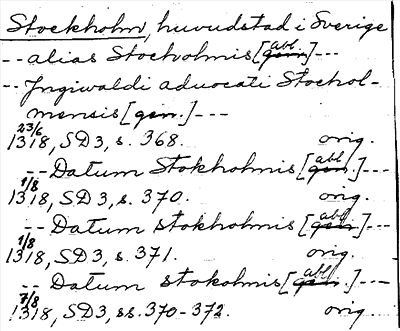 Stockholm, huvudstad i Sverige
-- alias Stocholmis [abl gen.] ---
-- Jngiwaldi aduocati Stochol-
mensis [gen.] ---
23/6
1318, SD3, s. 368. orig.
-- Datum Stokholmis [abl gen.] ---
1/8
1318, SD3, s. 370. orig.
-- Datum stokholmis [abl gen.] ---
1/8
1318, SD3, s. 371. orig.
-- Datum stokolmis [abl gen.] ---
7/8
1318, SD3, ss. 370-372. orig.